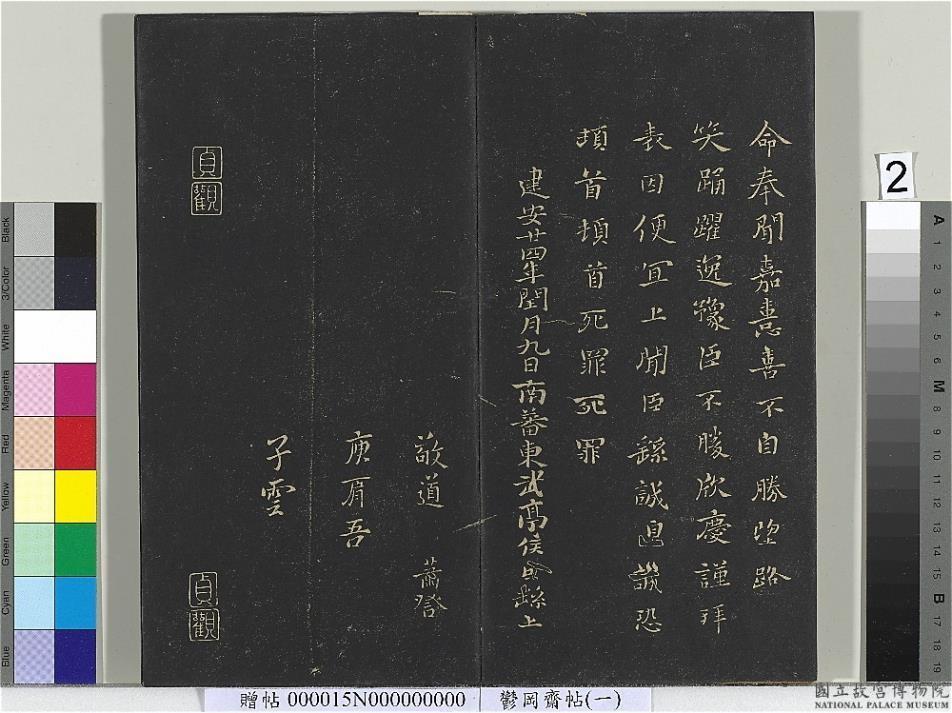 命奉聞嘉憙喜不自勝望路
笑踊躍逸豫臣不勝欣慶謹拜
表因便宜上聞臣繇誠惶誠恐
頓首頓首死罪死罪
建安廿四年閏月九日南蕃東武亭侯臣繇上
敬道
庾肩吾
子雲
貞觀
貞觀
2
Black
3/Color
White
Magenta
Red
Yellow
Green
Cyan
Blue
A
1
2
3
4
5
6
M
8
9
10
11
12
13
14
15
B
17
18
19
贈帖 000015N000000000
鬱岡齋帖(一)
國立故宮博物院
NATIONAL PALACE MUSEUM